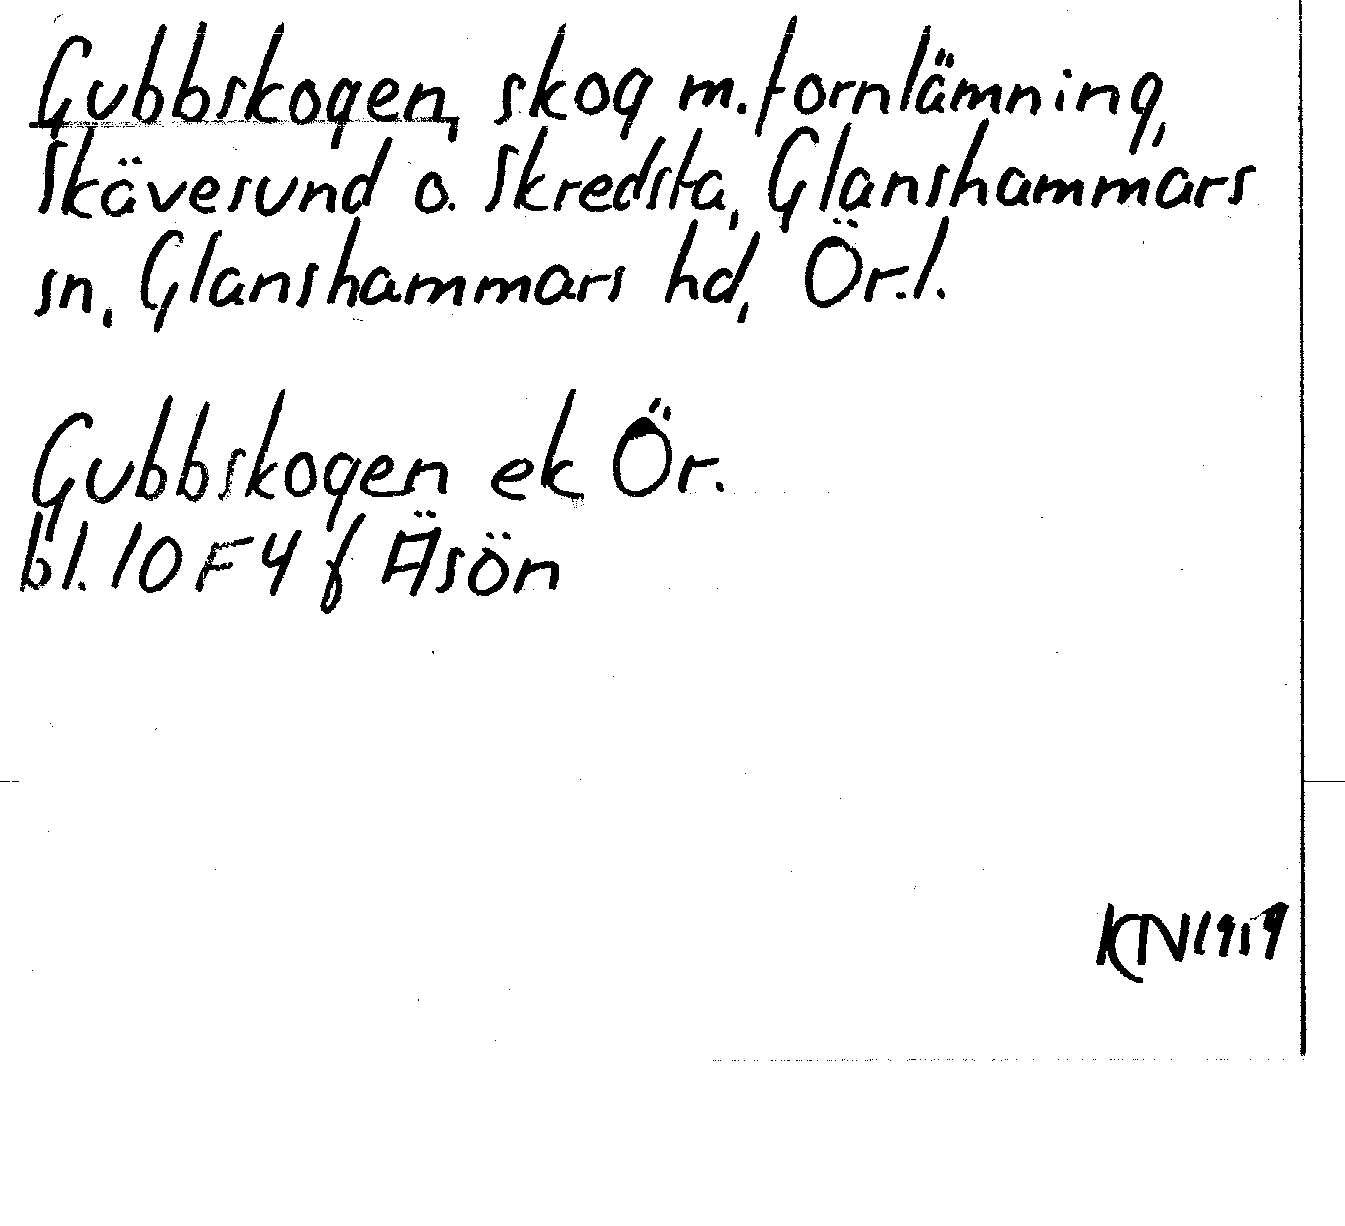 Gubbskogen, skog m. fornlämning,
Skävesund o. Skredsta, Glanshammars
sn, Glanshammars hd, Ör.l.
Gubbskogen ek Ör.
bl. 10 F 4 f Äsön